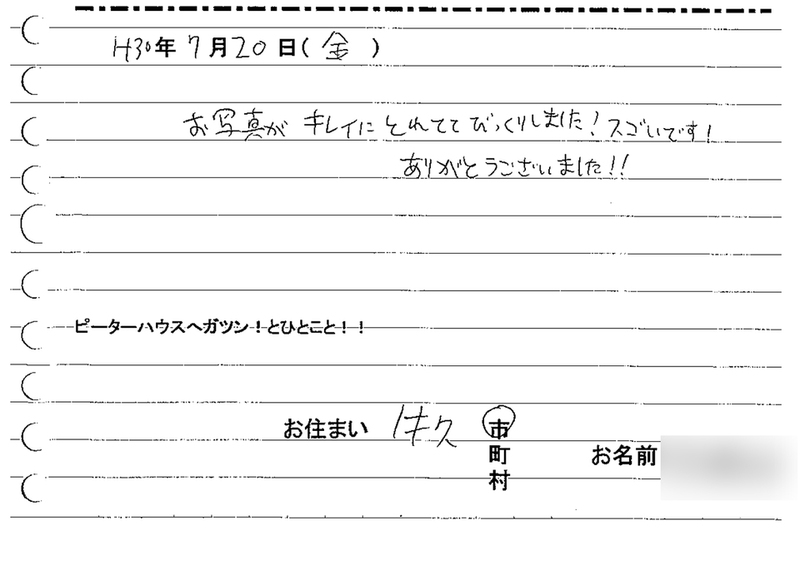 H30年7月20日(金)
お写真がキレイにとれててびっくりしました!スゴいです!
ありがとうございました!!
ピーターハウスへガツン!とひとこと!!
お住まい 佐久 市
町
村
お名前